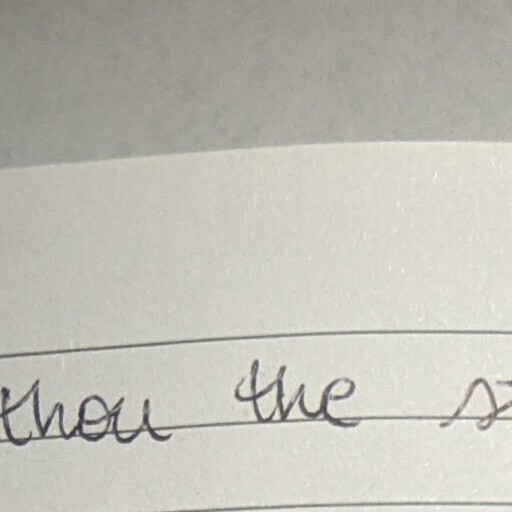 thou the